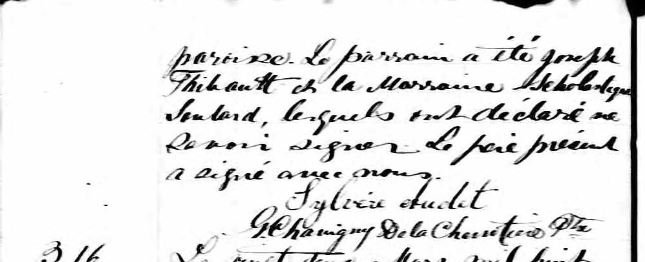 paroisse. Le parrain a été Joseph
Thibault et la Marraine Scholastique
Soulard, lesquels ont déclaré ne
savoir signer. Le père présent
a signé avec nous.
Sylvère Audet
G. Chavigny De la Chevrotière Ptre
B 16
Le vingt Mars mil huit